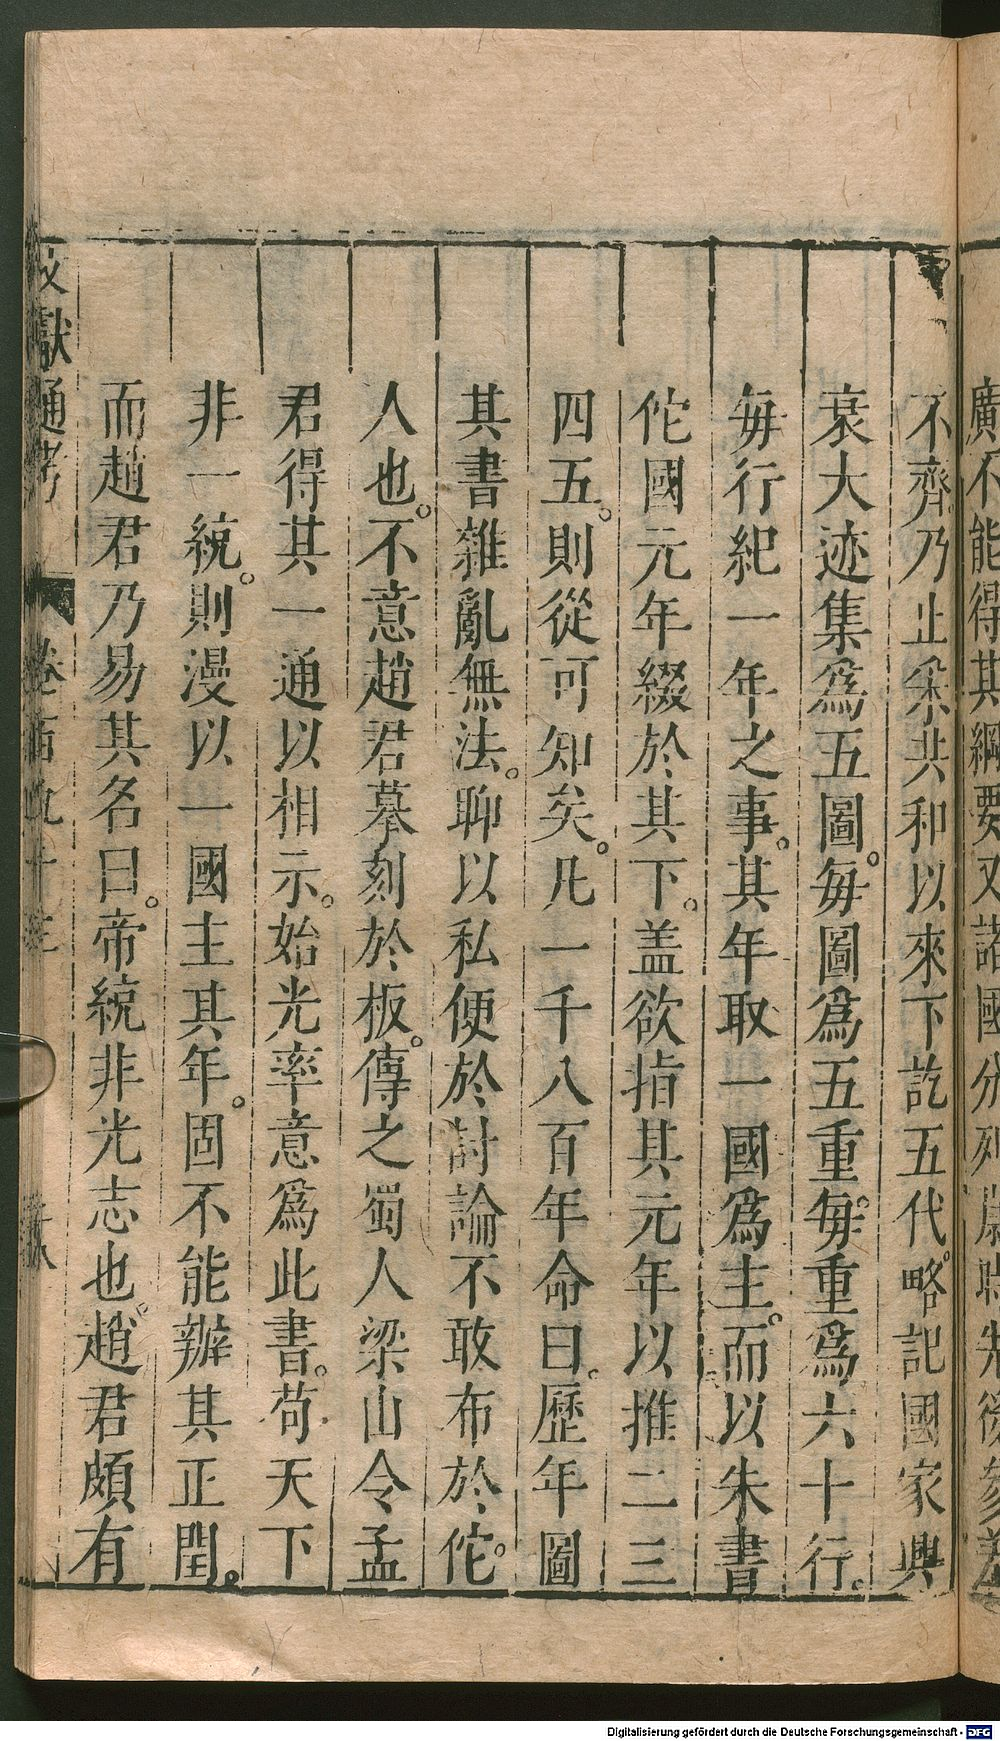 廣不能得其綱要又諸國分列歲時先後參差
不齊乃止采共和以來下訖五代略記國家興
衰大迹集爲五圖。每圖爲五重。每重爲六十行。
每行紀一年之事。其年取一國爲主。而以朱書
佗國元年綴於其下。盖欲指其元年以推二三
四五。則從可知矣。凡一千八百年命曰。歷年圖
其書雜亂無法。聊以私便於討論不敢布於佗。
人也。不意趙君摹刻於板。傳之蜀人梁山令孟
君得其一通以相示。始光率意爲此書。苟天下
非一統。則漫以一國主其年。固不能辦其正閏。
而趙君乃易其名曰。帝統非光志也趙君頗有
文獻通考 卷百九十三
Digitalisierung gefördert durch die Deutsche Forschungsgemeinschaft - DFG